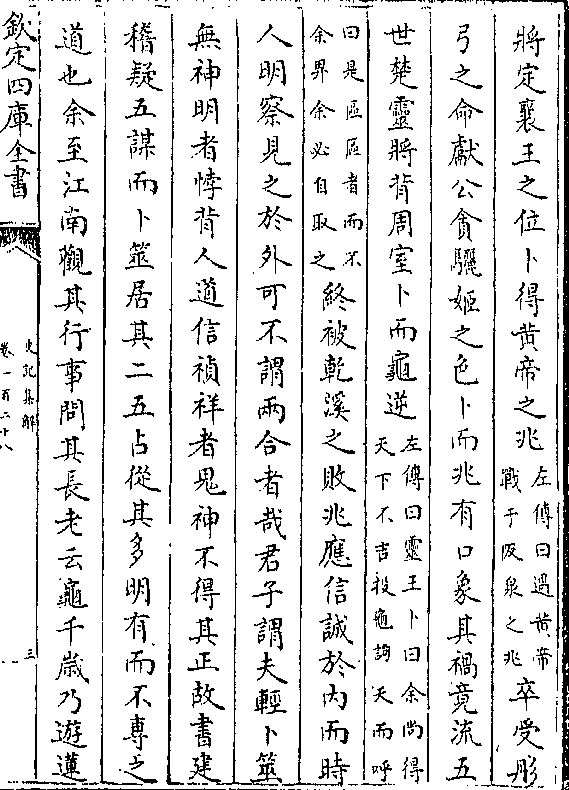 將定襄王之位卜得黃帝之兆左傳曰遇黃帝戰于阪泉之兆卒受彤
弓之命獻公貪驪姬之色卜而兆有口象其禍竟流五
世楚靈將背周室卜而龜逆左傳曰靈王卜曰余尚得天下不吉投龜詢天而呼
曰是區區者而不余畀余必自取之終被乾溪之敗兆應信誠於内而時
人明察見之於外可不謂兩合者哉君子謂夫輕卜筮
無神明者悖背人道信禎祥者鬼神不得其正故書建
稽疑五謀而卜筮居其二五占從其多明有而不專之
道也余至江南觀其行事問其長老云龜千歲乃遊蓮
欽定四庫全書
史記集解
卷一百二十八
三